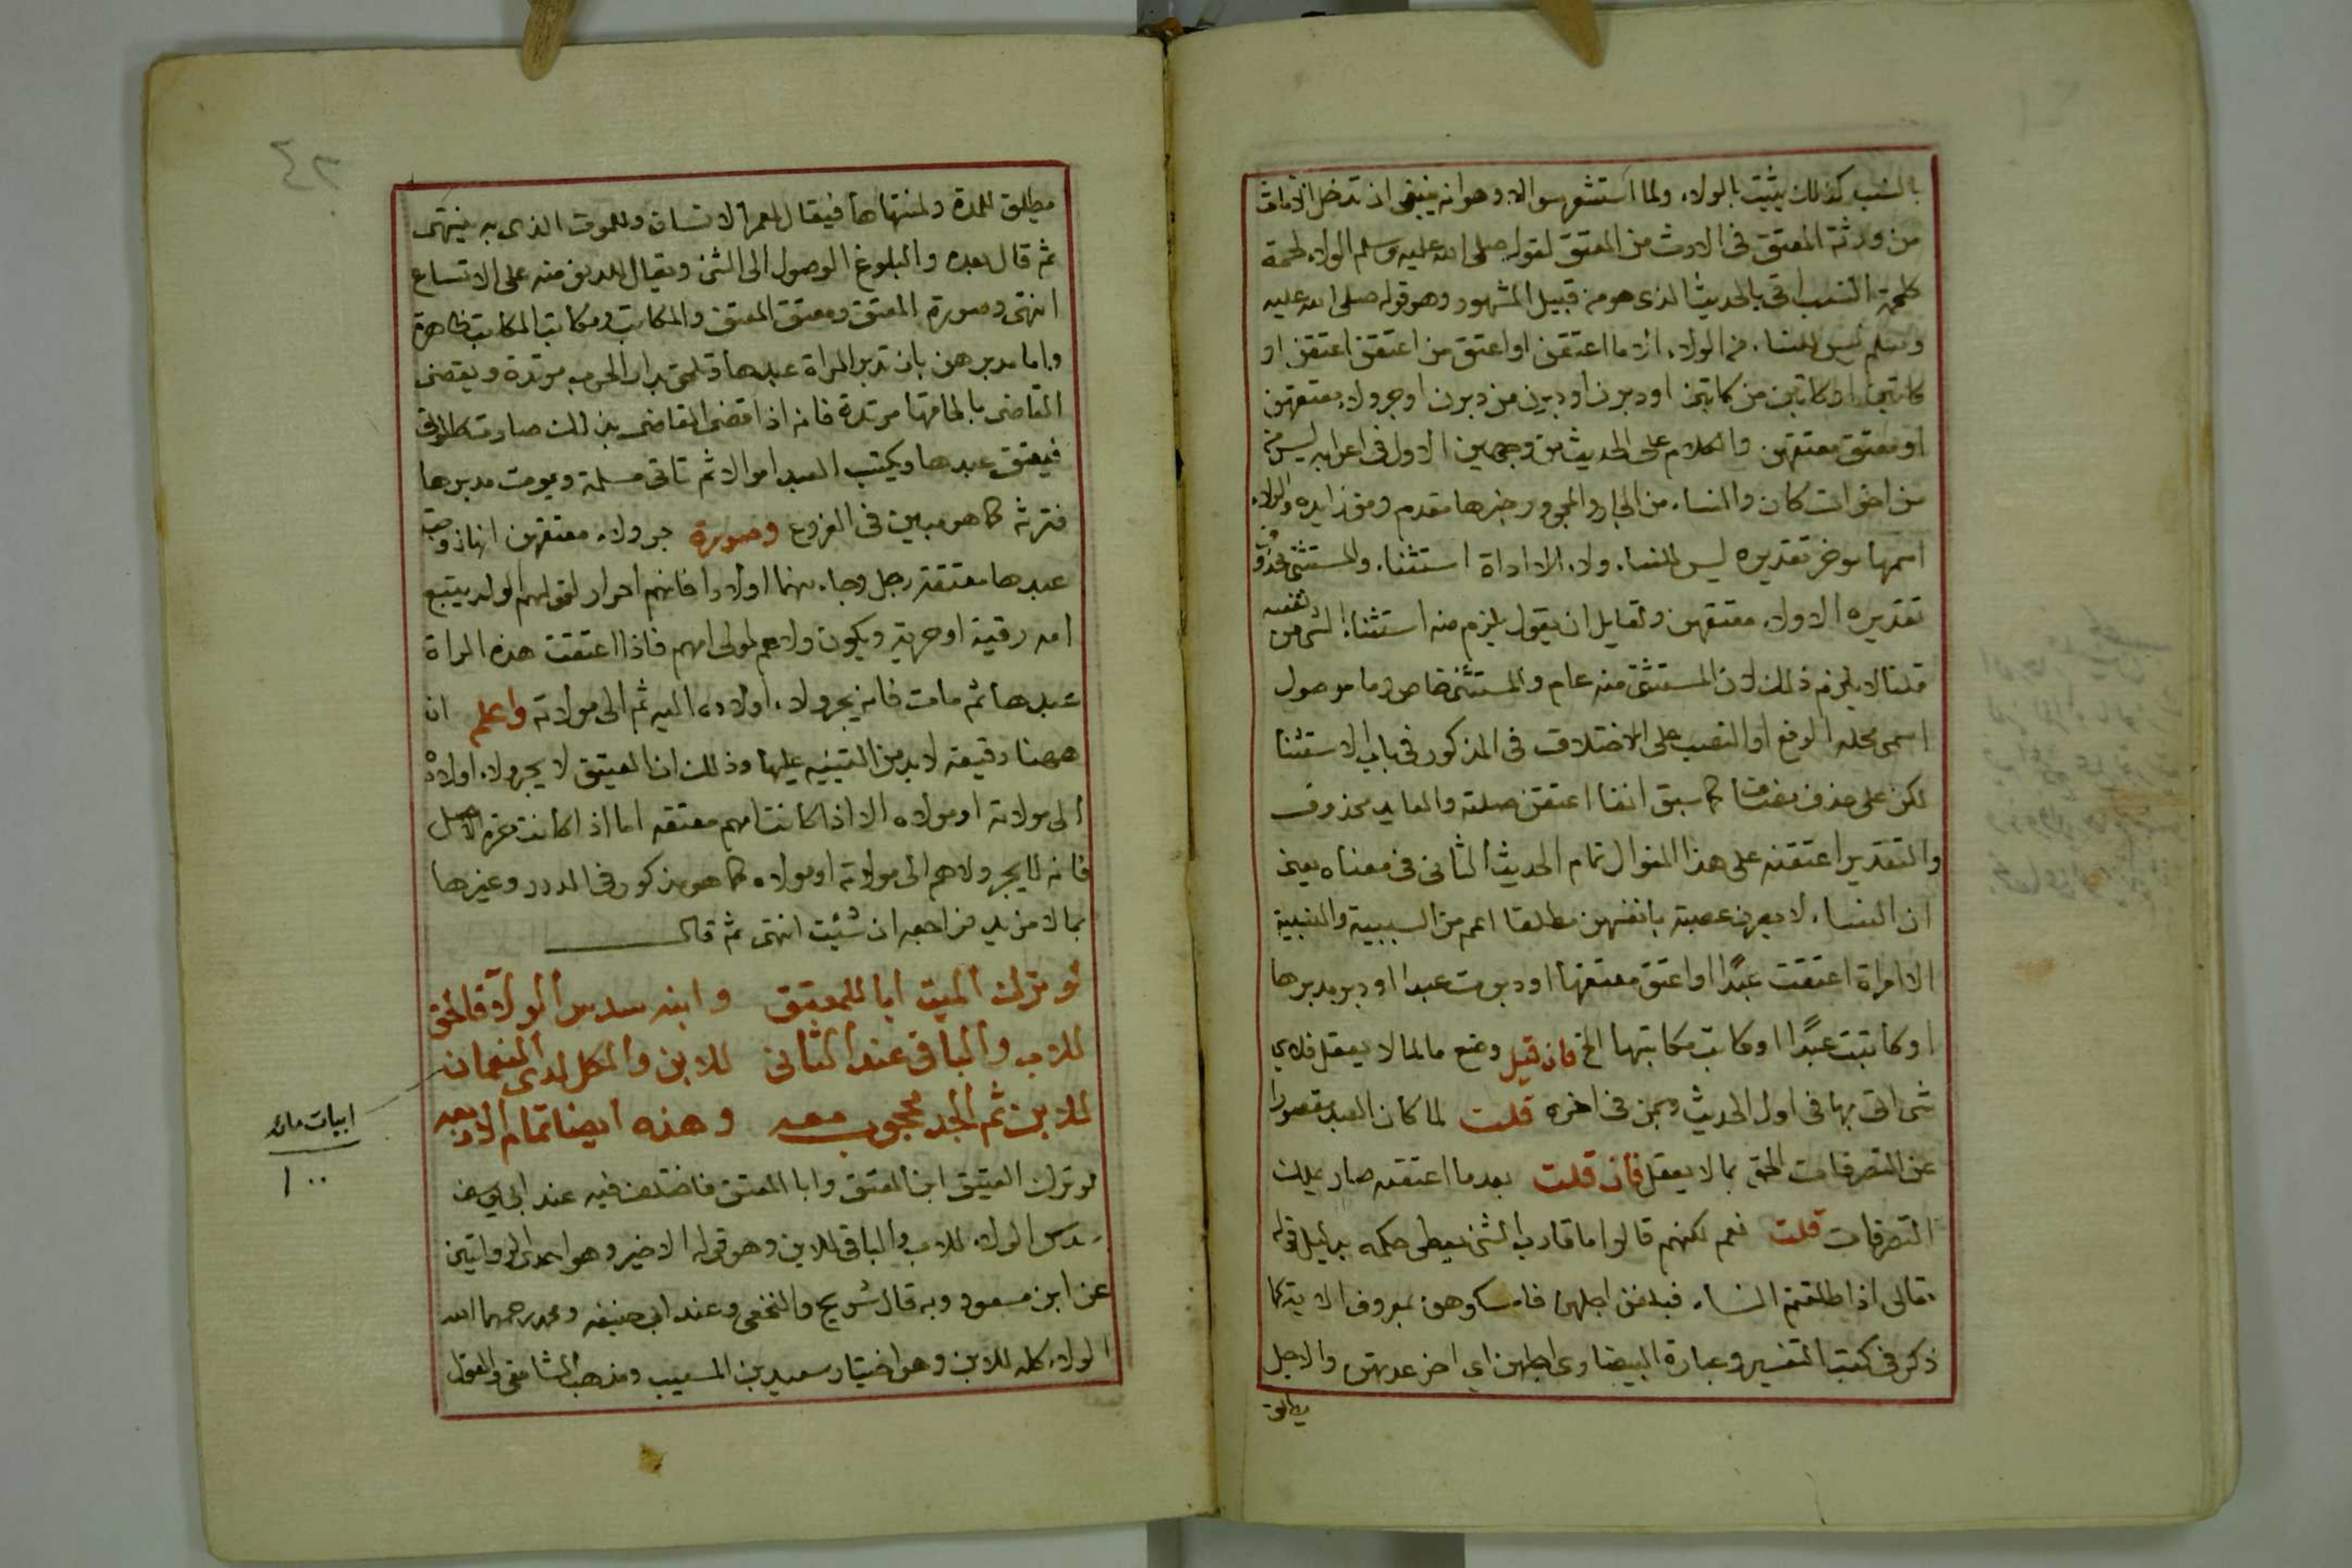 بالنسب كذلك يثبت بالولاء ولما استشعر سوالا وهو انه ينبغى ان تدخل الاناث
من ورثة المعتق فى الارث من المعتق لقوله صلى الله عليه وسلم الولاء لحمة
كلحمة النسب اتى بالحديث الذى هو من قبيل المشهور وهو قوله صلى الله عليه
وسلم ليس للنساء من الولاء الا ما اعتقن او اعتق من اعتقن او
كاتبن او كاتب من كاتبن او دبرن او دبرن من دبرن او جر ولاء معتقهن
او معتق معتقهن والكلام على الحديث من وجهين الاول فى اعرابه ليس
من اخوات كان والنساء من الجار والمجرور خبرها مقدم ومن زايده والولاء
اسمها موخر تقديره ليس للنساء ولاء الا اداة استثناء والمستثنى محذوف
تقديره الا ولاء معتقهن ولقايل ان يقول يلزم منه استثناء الشى من نفسه
قلنا لا يلزم ذلك لان المستثنى منه عام والمستثنى خاص وما موصول
اسمى محله الرفع او النصب على الاختلاف فى المذكور فى باب الاستثنا
لكن على حذف مضاف كما سبق انفا اعتقن صلته والعايد محذوف
والتقدير اعتقنه على هذا المنوال تمام الحديث الثانى فى معناه يعنى
ان النساء لا يصرن عصبة بانفسهن مطلقا اعم من السببية والنسبية
الا امراة اعتقت عبدًا او اعتق معتقها او دبرت عبدا او دبر مدبرها
او كاتبت عبدًا او كاتب مكاتبها الخ فان قيل وضع ما لما لا يعقل فلاى
شى اتى بها فى اول الحديث وبمن فى اخره قلت لما كان العبد مقصورا
عن التصرفات الحق بما لا يعقل فان قلت بعد ما اعتقه صار يملك
التصرفات قلت نعم لكنهم قالوا ما قارب الشى يعطى حكمه بدليل قوله
تعالى اذا طلقتم النساء فبلغن اجلهن فامسكوهن بمعروف الاية كما
ذكر فى كتب التفسير وعبارة البيضاوى اجلهن اى اخر عدتهن والاجل
يطلق
يطلق للمدة ولمنتهاها فيقال لعمر الانسان وللموت الذى به ينتهى
ثم قال بعده والبلوغ الوصول الى الشى ويقال للدنو منه على الاتساع
انتهى وصورة المعتق ومعتق المعتق والمكاتب ومكاتب المكاتب ظاهرة
واما مدبرهن بان تدبر المراة عبدها وتلحق بدار الحرب مرتدة ويقضى
القاضى بالحاقها مرتدة فانه اذا قضى القاضى بذلك صارت كالموتى
فيعتق عبدها ويكتسب العبد اموالا ثم تاتى مسلمة ويموت مدبرها
فترثه كما هو مبين فى الفروع وصورة جر ولاء معتقهن انها زوجت
عبدها معتقة رجل وجاء منها اولاد فانهم احرار لقولهم الولد يتبع
امه رقية او حرية ويكون ولاهم لمولى امهم فاذا اعتقت هذه المراة
عبدها ثم مات فانه يجر ولاء اولاده اليه ثم الى مولاته واعلم ان
ههنا دقيقة لا بد من التنبيه عليها وذلك ان العتيق لا يجر ولاء اولاده
الى مولاته او مولاه الا اذا كانت امهم معتقه اما اذا كانت حرة الاصل
فانه لا يجر ولاهم الى مولاته او مولاه كما هو مذكور فى الدرر وغيرها
بما لا مزيد فراجعه ان شئت انتهى ثم قال
لو ترك الميت ابا للمعتق وابنه سدس الولاء فالحق
للاب والباقى عند الثانى للابن والكل لدى النعمان
للابن ثم الجد محجوب معه وهذه ايضا تمام الاربعه
لو ترك العتيق ابن المعتق وابا المعتق فاختلف فيه عند ابى يوسف
سدس الولاء للاب والباقى للابن وهو قوله الاخير وهو احدى الروايتين
عن ابن مسعود وبه قال شريح والنخعى وعند ابى حنيفه ومحمد رحمهما الله
الولاء كله للابن وهو اختيار سعيد بن المسيب ومذهب الشافعى والقول
ابيات مائه
١٠٠